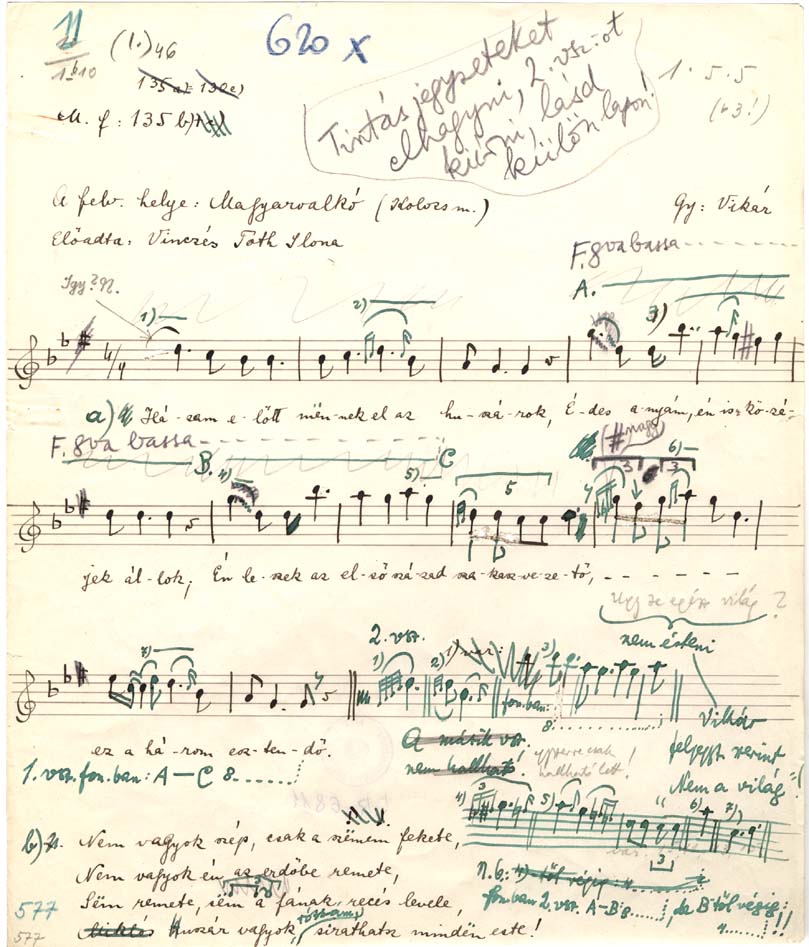 11
1 b 10
(1.) 46
620 x
135 a) = 130 e)
M. f: 135 b)
Tintás jegyzeteket
elhagyni, 2. vsz.-ot
kiírni, lásd
külön lapon!
1 . 5 . 5
(b3!)
A felv. helye: Magyarvalkó (Kolozsm.)
Gy: Vikár
Előadta: Vinczés Tóth Ilona
F. 8va bassa
A.
Így?
1) 2) 3)
4/4
a) Há-zam e-lőtt mën-nek el az hu-szá-rok, É-des a-nyám, én is kö-zé-
F. 8va bassa
B. 4) 5) C 5 (#nagy) 3 3 6)
jek ál-lok; Én le-szek az el-ső szá-zad sza-kasz-ve-ze-tő,
Ugye egész világ ?
nem ésteni
7)
2. vsz.
1) 2) 1) var: 3)
fon.ban:
8
ez a há-rom esz-ten-dő.
A másik vsz.
nem hallható!
egyszerre csak
hallható lett!
Vikár
feljegyz. szerint
"Nem a világ"
1. vsz. fon.ban: A — C 8
4) 3 5) 6) 7)
3
b) Nem vagyok szép, csak a szëmem fekete,
Nem vagyok én az erdőbe remete,
Sëm remete, sëm a fának recés levele,
rózsám,
Huszár vagyok, sirathatsz mindën este!
577
577
n. b: 4) től végig: 4
fon.ban 2. vsz. A-B 8
de B től végig:
4 !!